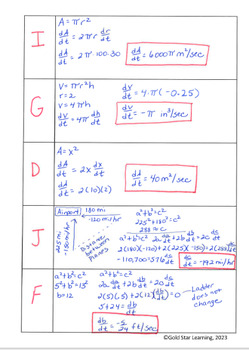 I
A = πr²
dA/dt = 2πr dr/dt
dA/dt = 2π·100·30
dA/dt = 6000π m²/sec
G
V = πr²h
r = 2
V = 4πh
dV/dt = 4π dh/dt
dV/dt = 4·π(-0.25)
dV/dt = -π in³/sec
D
A = x²
dA/dt = 2x dx/dt
dA/dt = 2(10)(2)
dA/dt = 40 m²/sec
J
Airport 180 mi
-120 mi/hr
225 mi
-150 mi/hr
Distance between planes
a²+b²=c²
225²+180²=c²
288 = c
a²+b²=c² 2a da/dt + 2b db/dt = 2c dc/dt
-110,700 = 576 dc/dt
dc/dt = -192 mi/hr
F
a²+b²=c²
b=12
a²+b²=c²
2a da/dt + 2b db/dt = 2c dc/dt
2(5)(.5)+2(12)db/dt = 0
Ladder does not change
db/dt = -5/24 ft/sec
©Gold Star Learning, 2023